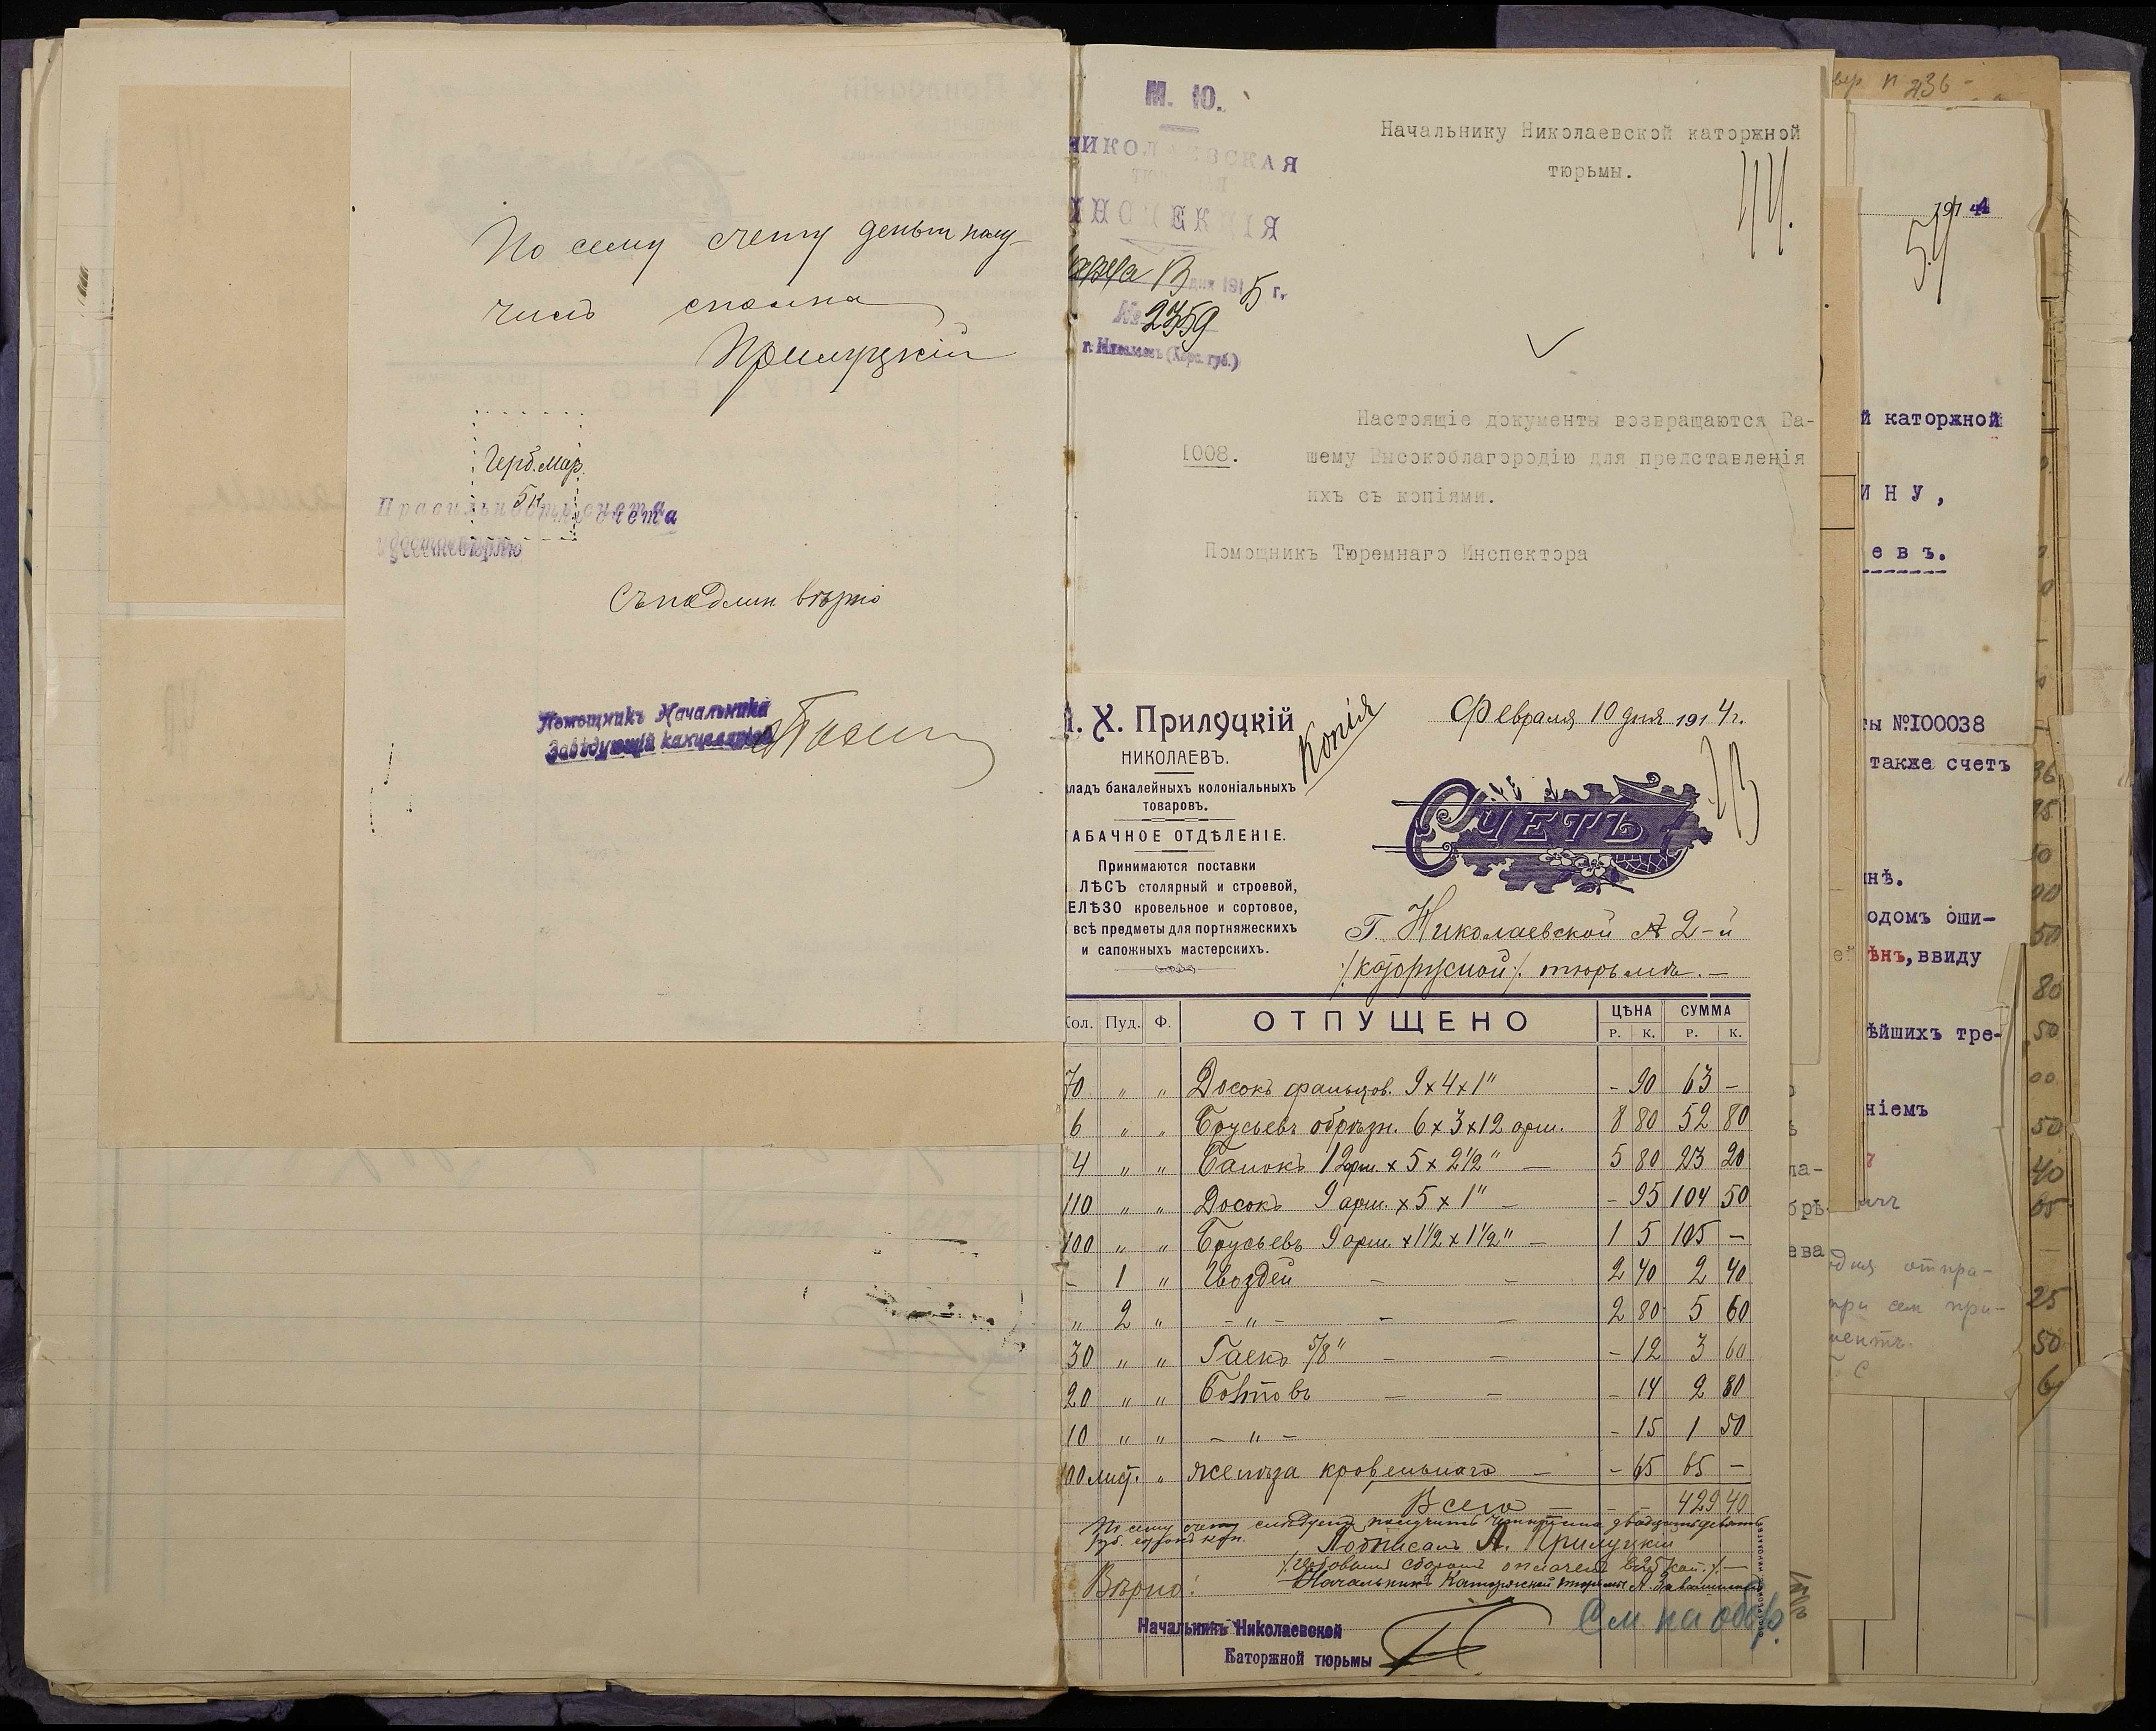 По сему счету деньги полу-
чилъ сполна
Прилуцкій
Герб. мар.
5 к.
Правильность счета
счета
удостоверяю
Съ подлин верно
Помощникъ Начальника
Завѣдующій канцеляріей
М. Ю.
НИКОЛАЕВСКАЯ
ТЮРЕМНАЯ
ИНСПЕКЦІЯ
Марта 13 дня 1915 г.
№ 2759
г. Николаевъ (Херс. губ.)
Начальнику Николаевской каторжной
тюрьмы.
114.
Настоящіе документы возвращаются Ва-
1008. шему Высокоблагородію для представленія
ихъ съ копіями.
Помощникъ Тюремнаго Инспектора
А. Х. Прилуцкій
НИКОЛАЕВЪ.
кладъ бакалейныхъ колоніальныхъ
товаровъ.
ТАБАЧНОЕ ОТДѢЛЕНІЕ.
Принимаются поставки
ЛѢСЪ столярный и строевой,
ЖЕЛѢЗО кровельное и сортовое,
всѣ предметы для портняжескихъ
и сапожныхъ мастерскихъ.
Копія
Февраля 10 дня 1914 г.
СЧЕТЪ
Г. Николаевской 2-й
/каторжной/ тюрьмѣ. —
Кол. Пуд. Ф. ОТПУЩЕНО ЦѢНА СУММА
Р. К. Р. К.
70 " " Досокъ фальцов. 9 x 4 x 1" - 90 63 -
6 " " Брусьевъ обрѣзн. 6 x 3 x 12 арш. 8 80 52 80
4 " " Балокъ 12 арш. x 5 x 2 1/2" — 5 80 23 20
110 " " Досокъ 9 арш. x 5 x 1" — - 95 104 50
100 " " Брусьевъ 9 арш. x 1 1/2 x 1 1/2" — 1 5 105 -
- 1 " Гвоздей - - 2 40 2 40
" 2 " - " - - - 2 80 5 60
30 " " Гаекъ 5/8" - - - 12 3 60
20 " " Болтовъ - - - 14 2 80
10 " " - " - - 15 1 50
100 лист. " желѣза кровельнаго — - 65 65 -
Всего — - - 429 40
По сему счету слѣдуетъ получить четыреста двадцать девять
руб. сорокъ коп.
Подписалъ А. Прилуцкій
/Гербовымъ сборомъ оплаченъ въ 25 коп./ —
Вѣрно: Начальникъ Каторжской тюрьмы
Начальникъ Николаевской
Каторжной тюрьмы
См. на обор.
вер. п 236 -
1914
54
й каторжной
ИНУ,
евъ.
ты №100038
также счетъ
нѣ.
одомъ оши-
ѣнъ, ввиду
ѣйшихъ тре-
ніемъ
ла-
брѣ-
ева
одня отпра-
при сем при-
36
95
50
00
50
80
50
00
50
40
65
25
50